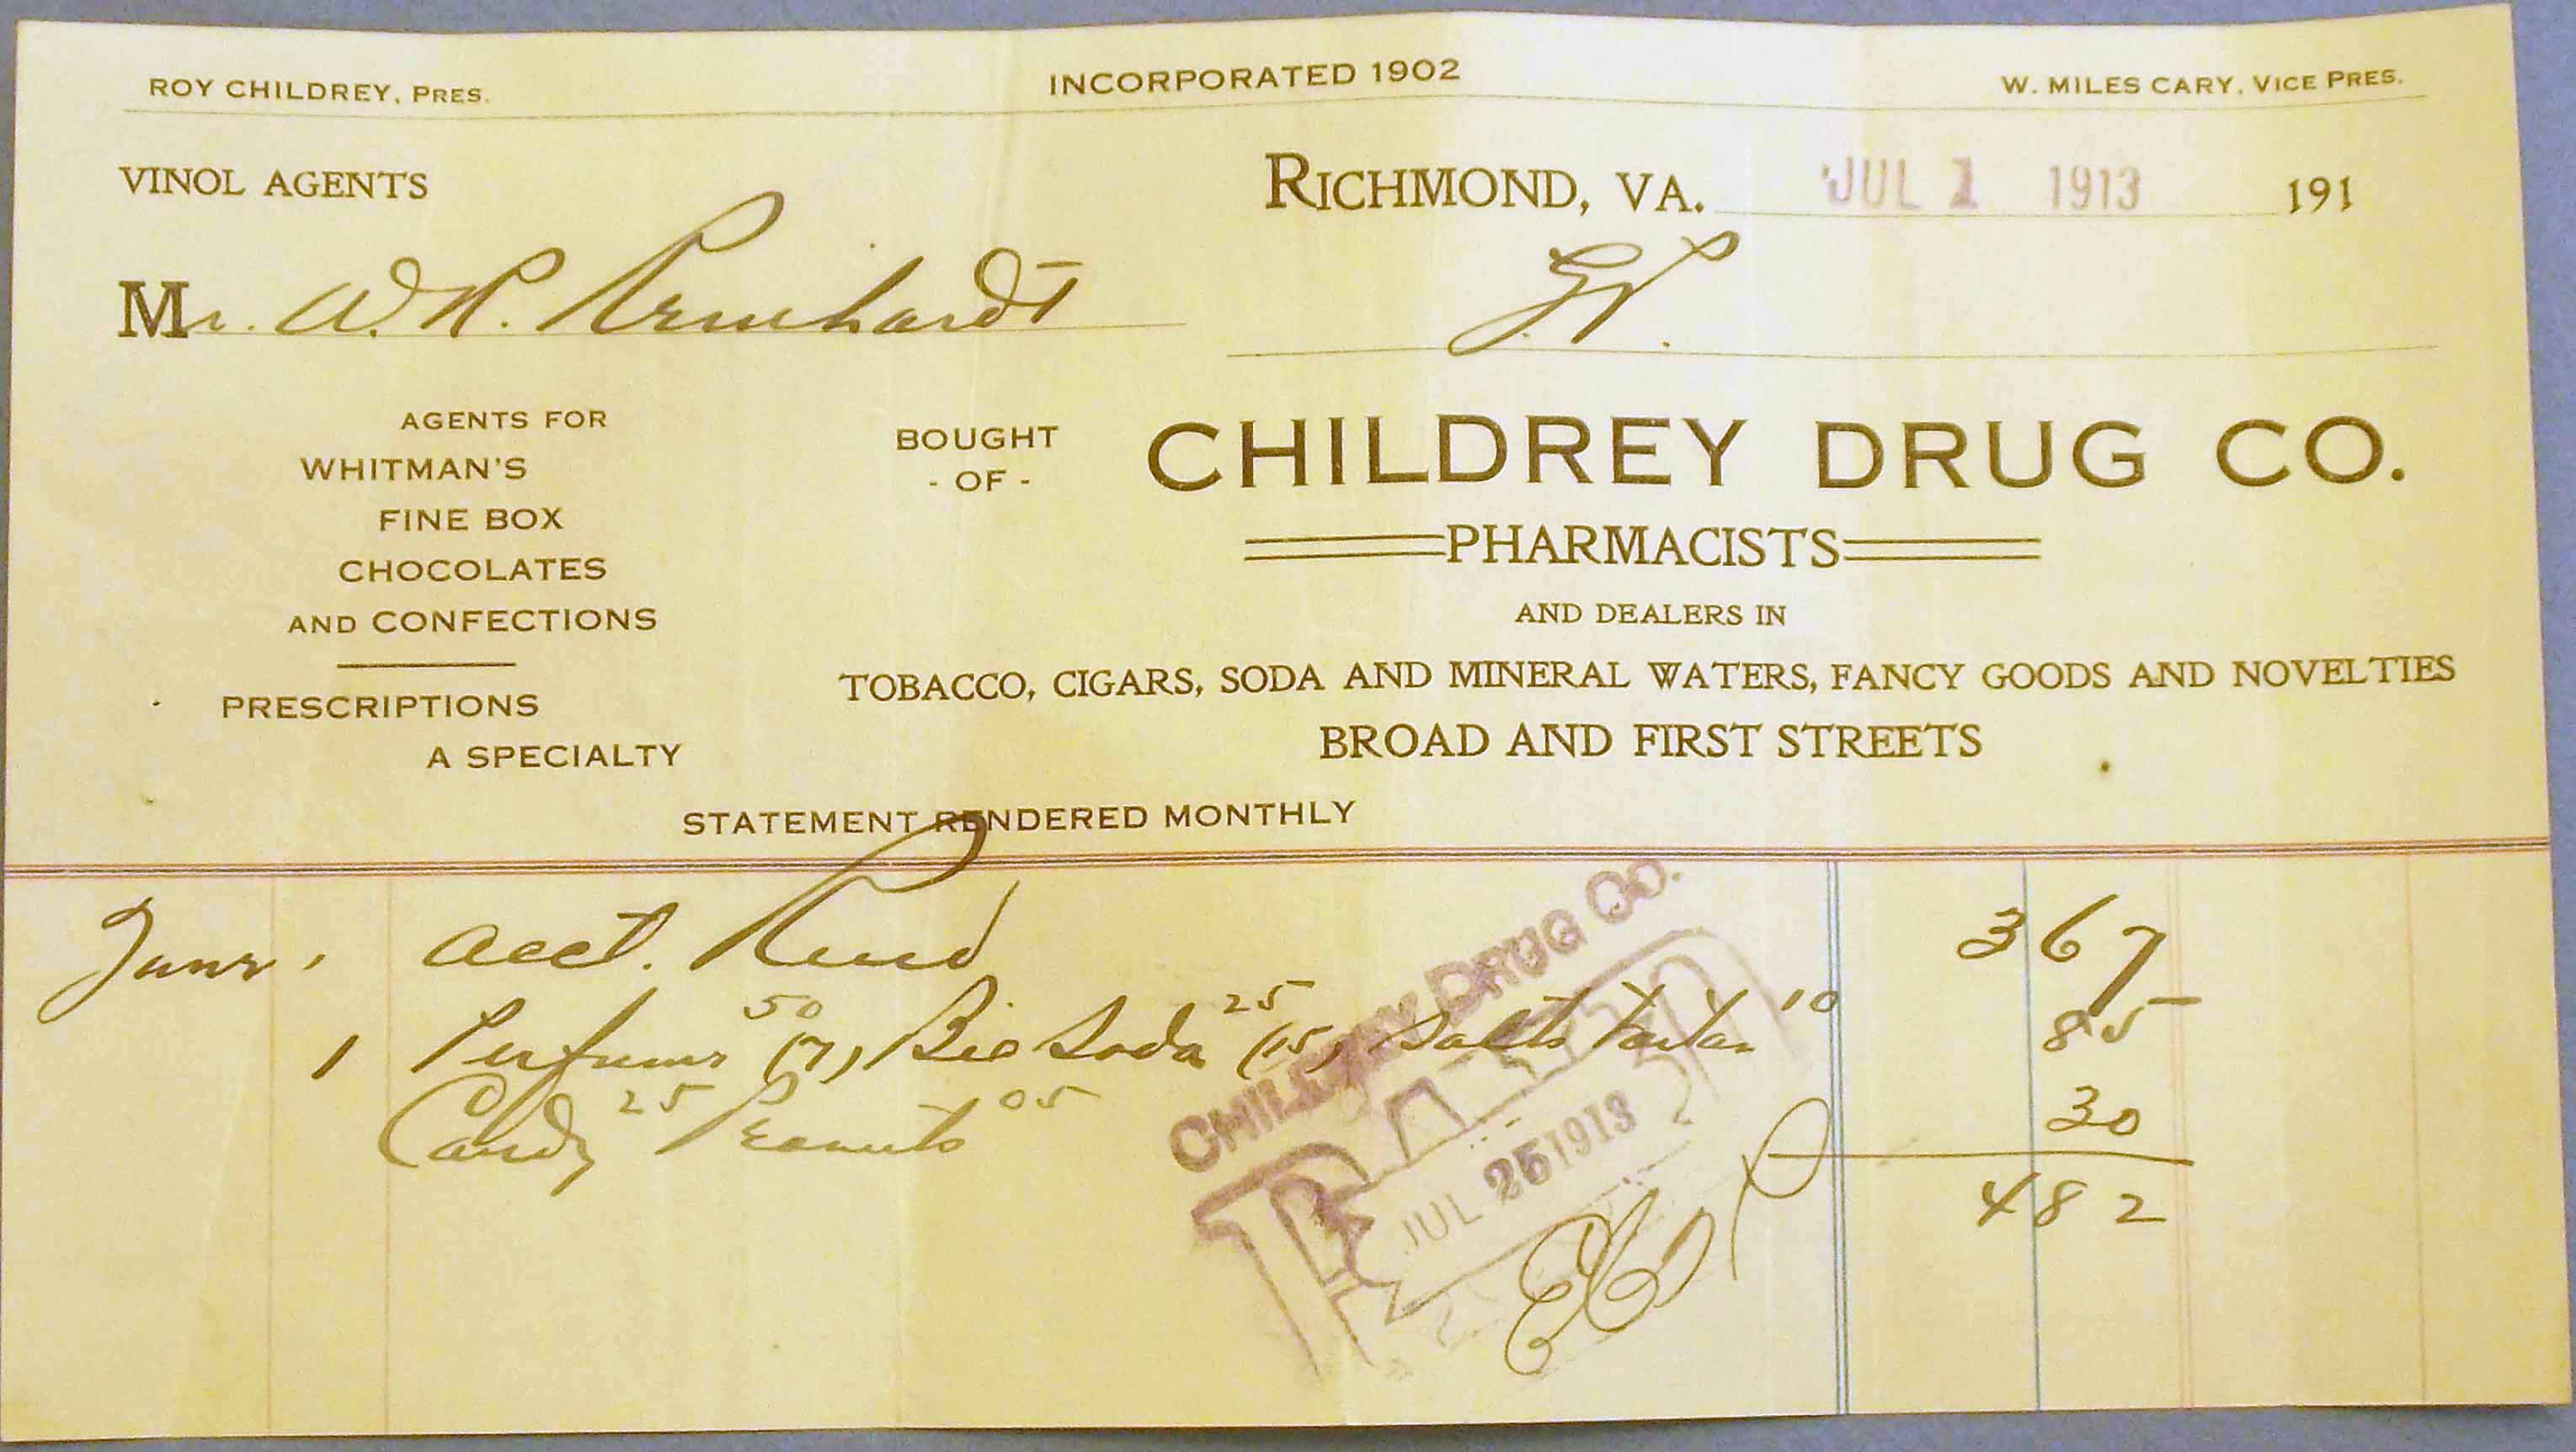 ROY CHILDREY, PRES. INCORPORATED 1902 W. MILES CARY, VICE PRES.
VINOL AGENTS
RICHMOND, VA. JUL 1 1913 191
Mr. W. R.
AGENTS FOR
WHITMAN'S
FINE BOX
CHOCOLATES
AND CONFECTIONS
PRESCRIPTIONS
A SPECIALTY
BOUGHT
- OF -
CHILDREY DRUG CO.
PHARMACISTS
AND DEALERS IN
TOBACCO, CIGARS, SODA AND MINERAL WATERS, FANCY GOODS AND NOVELTIES
BROAD AND FIRST STREETS
STATEMENT RENDERED MONTHLY
June 1 Acct. Rend 3 67
1 Perfume 50 (7), Bic Soda 25 (15), Salts Tartar 10 85
Candy 25 Peanuts 05 30
4 82
CHILDREY DRUG CO.
PAID
JUL 25 1913